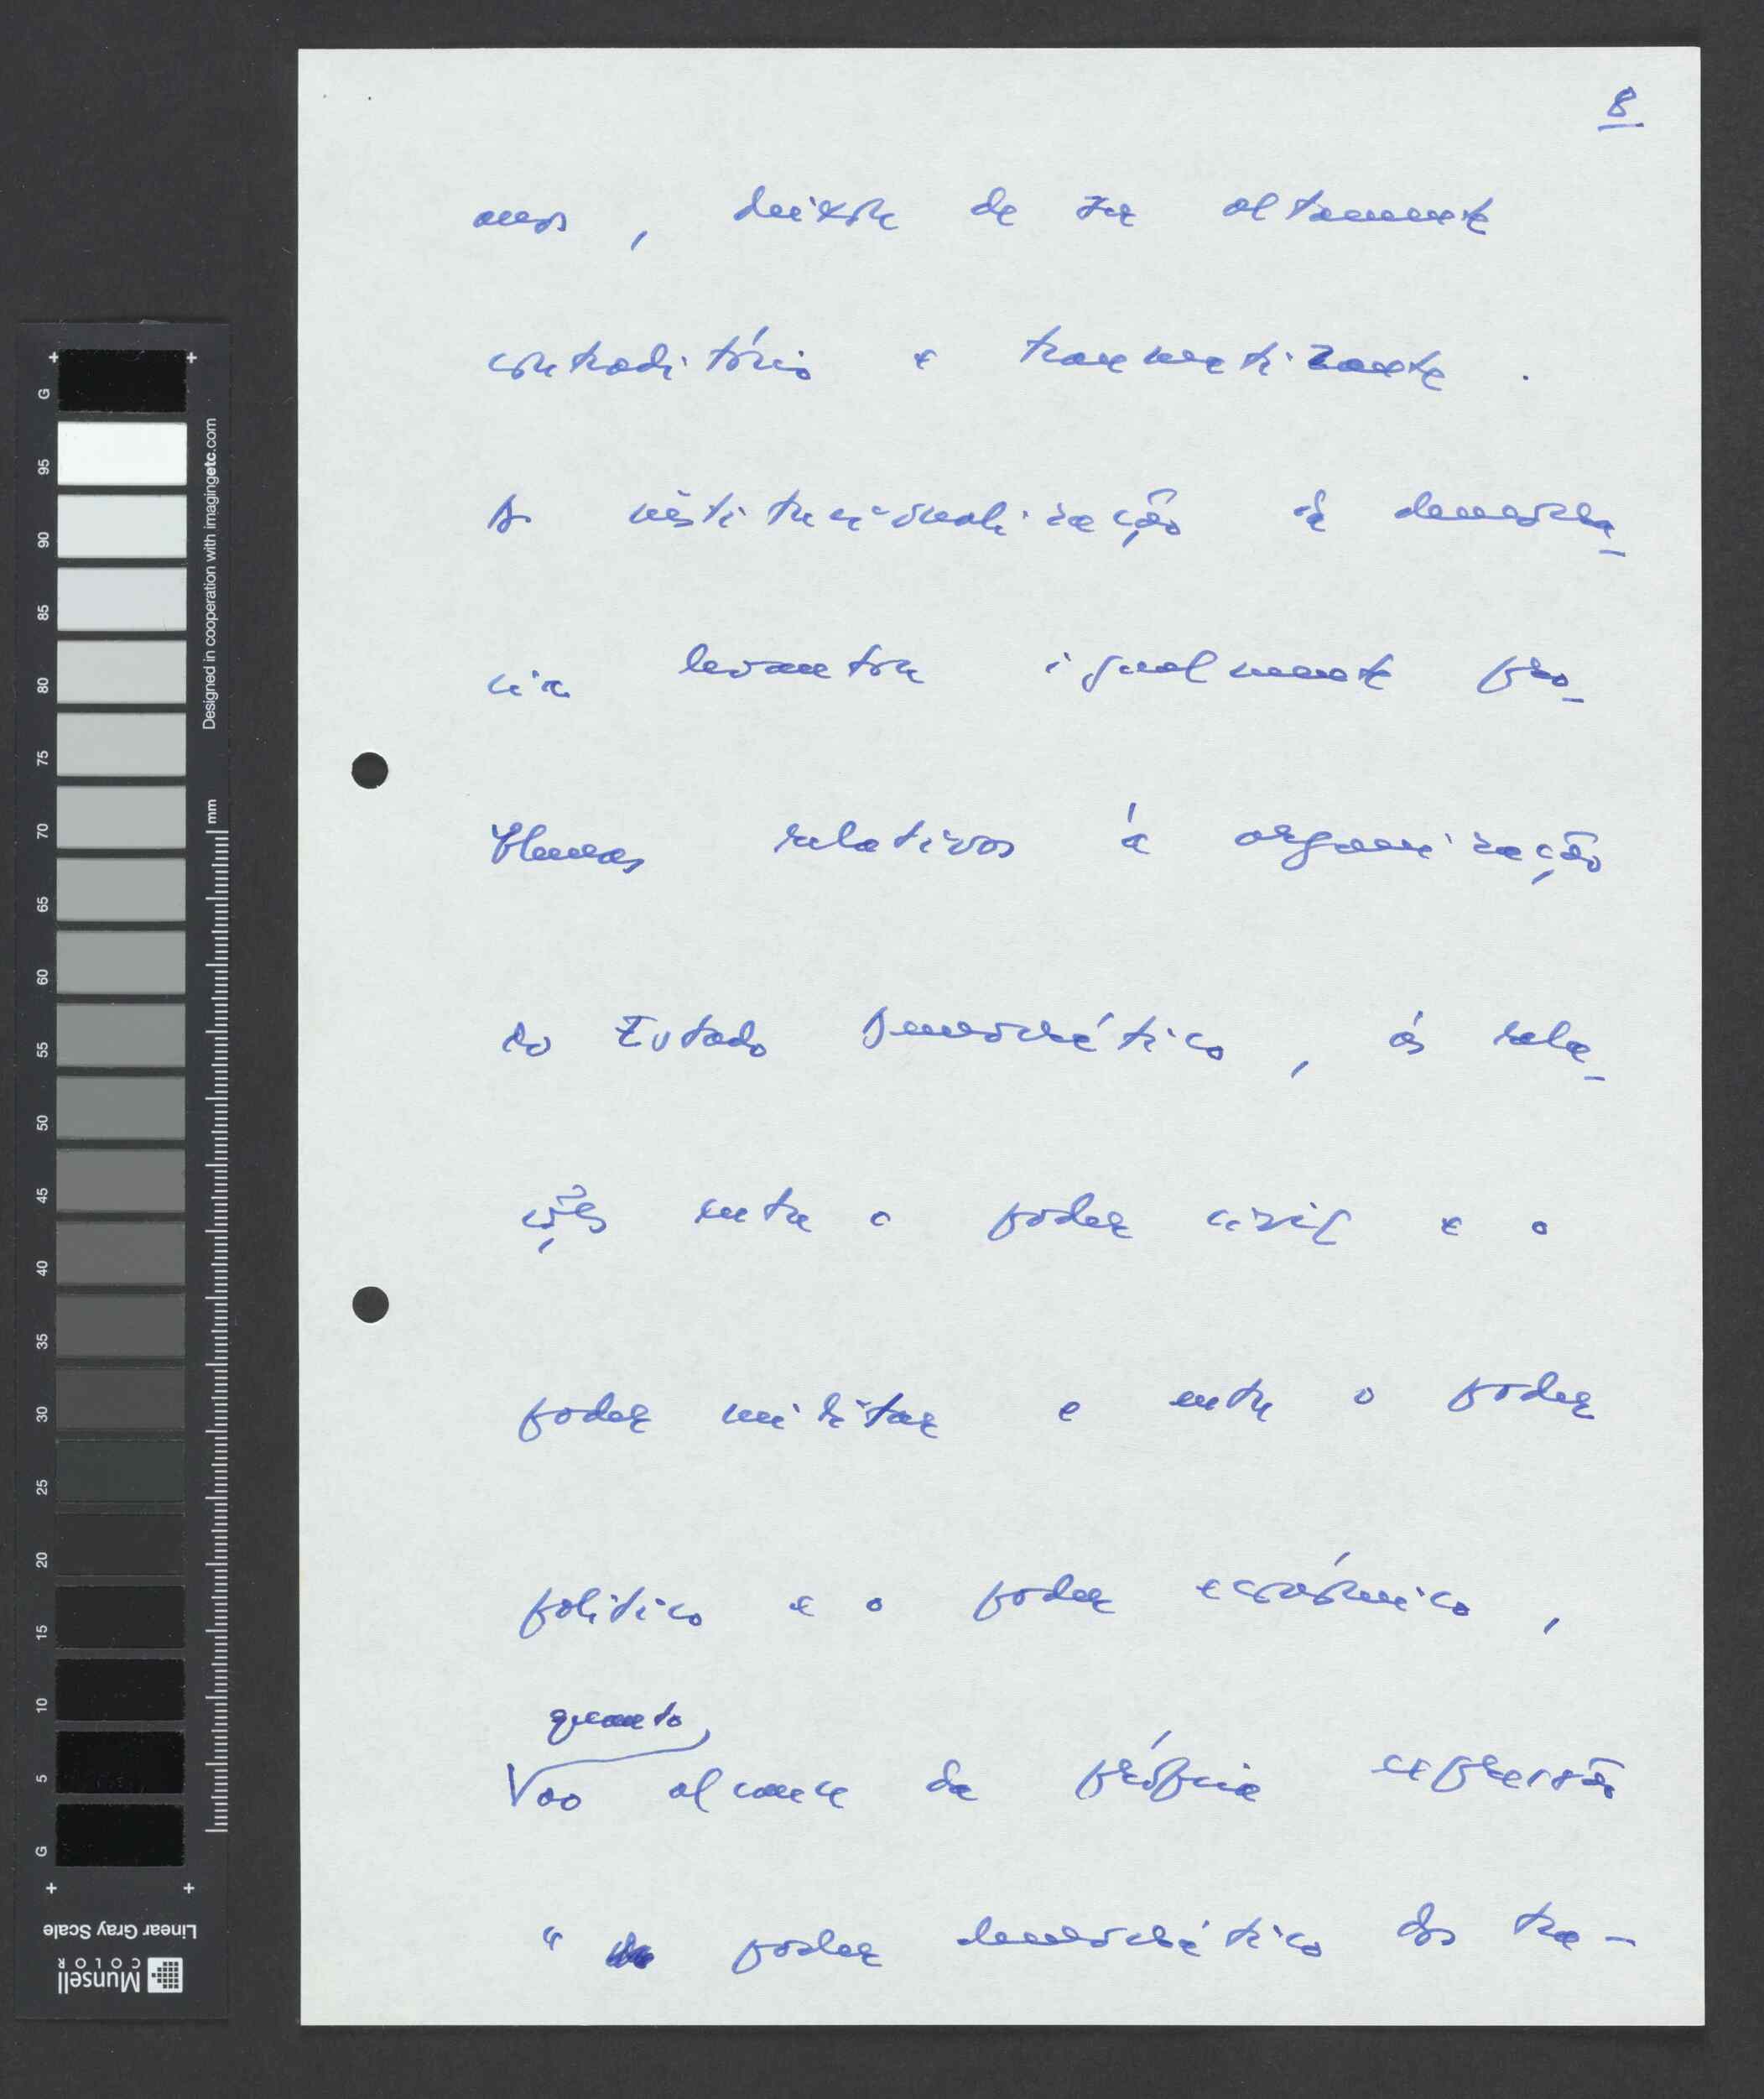 8
anos, deixou de ser altamente
contraditório e traumatizante.
A institucionalização da democra_
cia levantou igualmente pro_
blemas relativos à organização
do Estado Democrático, às rela_
ções entre o poder civil e o
poder militar e entre o poder
politico e o poder económico,
quanto
ao alcance da própria expressão
" poder democrático dos tra-
G
95
90
85
80
75
70
65
60
55
50
45
40
35
30
25
20
15
10
5
G
Designed in cooperation with imagingetc.com
mm
Linear Gray Scale
Munsell
COLOR